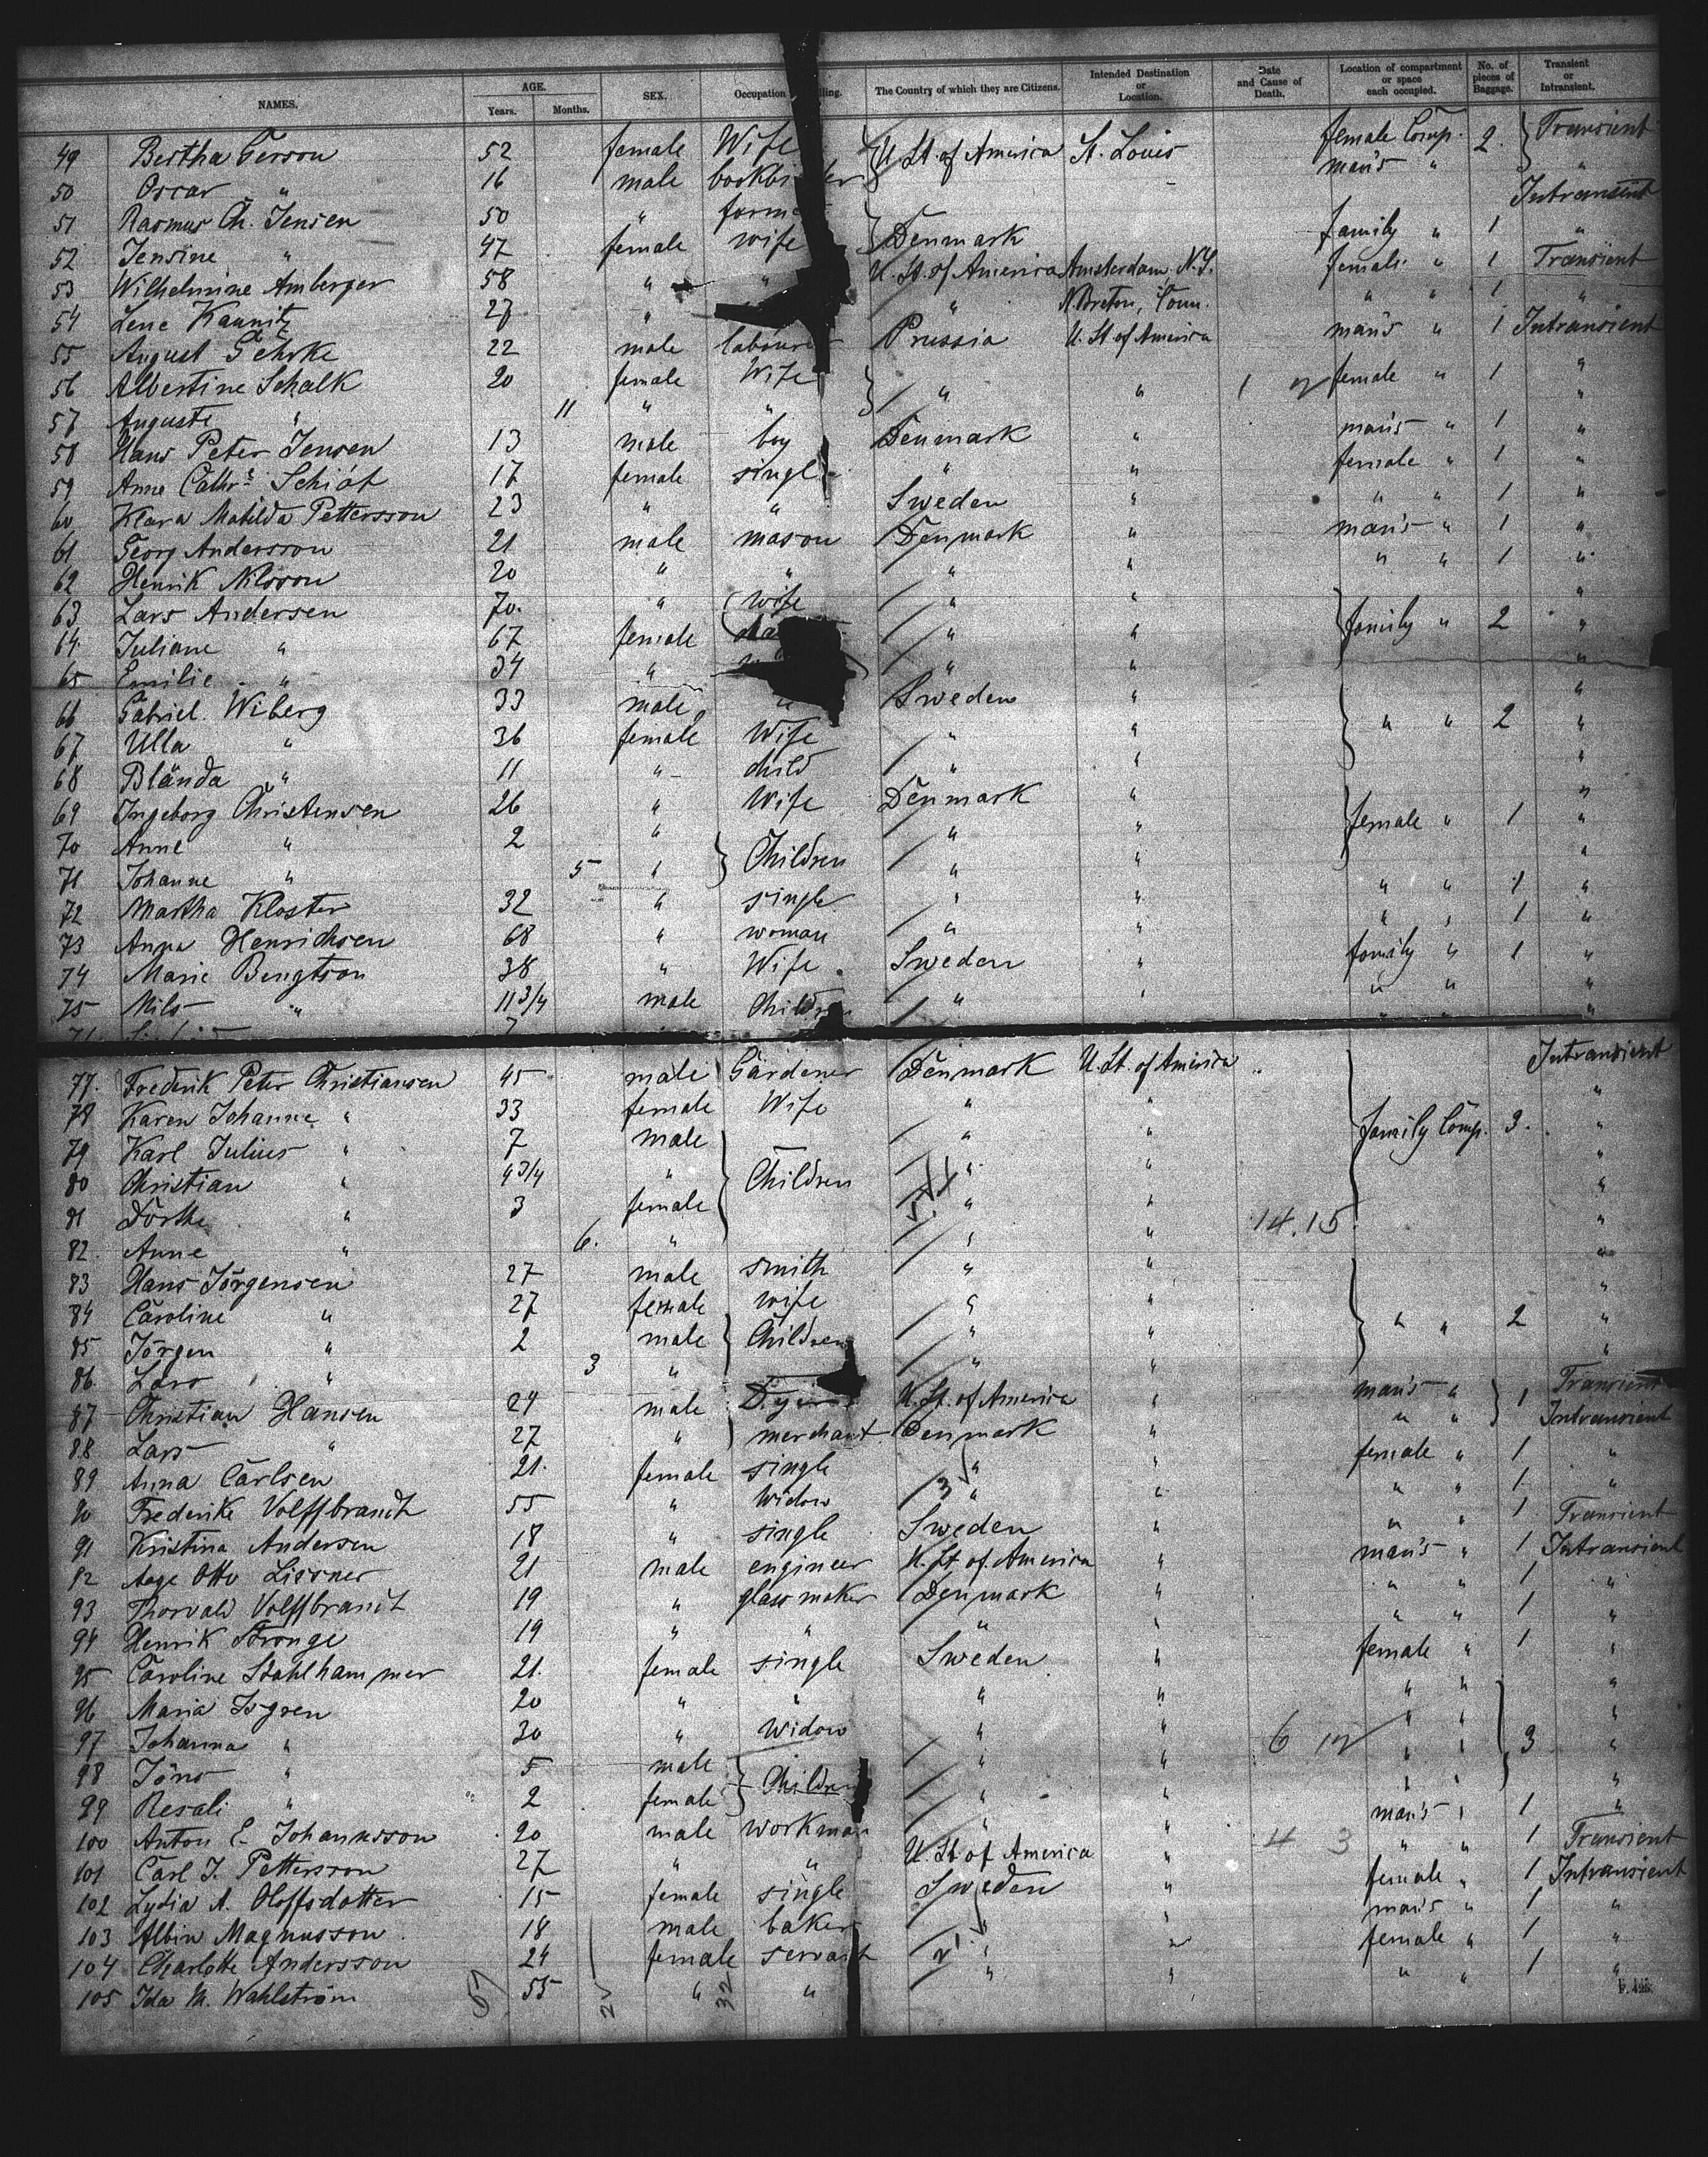 NAMES. AGE. Years. Months. SEX. Occupation The Country of which they are Citizens. Intended Destination or Location. Date and Cause of Death. Location of compartment or space each occupied. No. of pieces of Baggage. Transient or Intransient.
49 Bertha Gerson 52 female Wife U. St. of America St. Louis female Comp. 2. Transient
50 Oscar " 16 male man's " "
51 Rasmus Ch. Jensen 50 " Intransient
52 Jensine " 47 female wife Denmark family " 1 "
53 Wilhelmine Amberger 58 " " U. St. of America Amsterdam N.Y. female " 1 Transient
54 Lene Kaunitz 27 " " N. Breton, Conn. " " 1 "
55 August Gehrke 22 male labourer Prussia U. St of America man's " 1 Intransient
56 Albertine Schalk 20 female Wife " " 1 female " 1 "
57 Auguste " 11 " " "
58 Hans Peter Jensen 13 male boy Denmark " man's " 1 "
59 Anne Cathr. Schiöt 17 female single " " female " 1 "
60 Klara Matilda Pettersson 23 " " Sweden " " " 1 "
61 Georg Andersson 21 male mason Denmark " man's " 1 "
62 Henrik Nilsson 20 " " " " " " 1 "
63 Lars Andersen 70. " wife " " "
64 Juliane " 67 female " " family " 2 "
65 Emilie " 34 " " " "
66 Gabriel Wiberg 33 male " Sweden " "
67 Ulla " 36 female Wife " " " " 2 "
68 Blända " 11 " child " " "
69 Ingeborg Christensen 26 " Wife Denmark " "
70 Anne " 2 " " " female " 1 "
71 Johanne " 5 " Children " " "
72 Martha Kloster 32 " single " " " " 1 "
73 Anna Henrichsen 68 " woman " " " " 1 "
74 Marie Bengtson 38 " Wife Sweden " family " 1 "
75 Nils " 11 3/4 male " " " " "
77. Frederik Peter Christiansen 45 male Gardener Denmark U. St. of America Intransient
78 Karen Johanne " 33 female Wife " " "
79 Karl Julius " 7 male " " family Comp. 3. "
80 Christian " 4 3/4 " Children " " "
81 Dorthe " 3 female " " "
82. Anne " 6. " " " 14.15 "
83 Hans Jörgensen 27 male smith " " "
84 Caroline " 27 female wife " " "
85 Jörgen " 2 male Children " " " " 2 "
86. Lars " 3 " " " "
87 Christian Hansen 24 male U. St. of America " man's " 1 Transient
88 Lars " 27 " merchant Denmark " " " Intransient
89 Anna Carlsen 21. female single " " female " 1 "
90 Frederike Volffbrandt 55 " Widow 3 " " " " 1 "
91 Kristina Andersen 18 " single Sweden " " " 1 Transient
92 Aage Otto Lissner 21 male engineer U. St. of America " man's " 1 Intransient
93 Thorvald Volffbrandt 19 " glass maker Denmark " " " 1 "
94 Henrik Stronge 19 " " " " " " 1 "
95 Caroline Stahlhammer 21. female single Sweden " female " 1 "
96 Maria Isgren 20 " " " " " " "
97 Johanna " 30 " Widow " " 6 " " "
98 Jöns " 5 male Children " " " " 3 "
99 Resali " 2 female " " " " "
100 Anton E. Johannsson 20 male workman " " man's " 1 "
101 Carl J. Pettersson 27 " " U. St of America " 4 3 " " 1 Transient
102 Lydia A. Oloffsdotter 15 female single Sweden " female " 1 Intransient
103 Albin Magnusson 18 male baker " " man's " 1 "
104 Charlotte Andersson 24 female servant " " female " 1 "
105 Ida M. Wahlström 55 " " " " " " 1 "
32